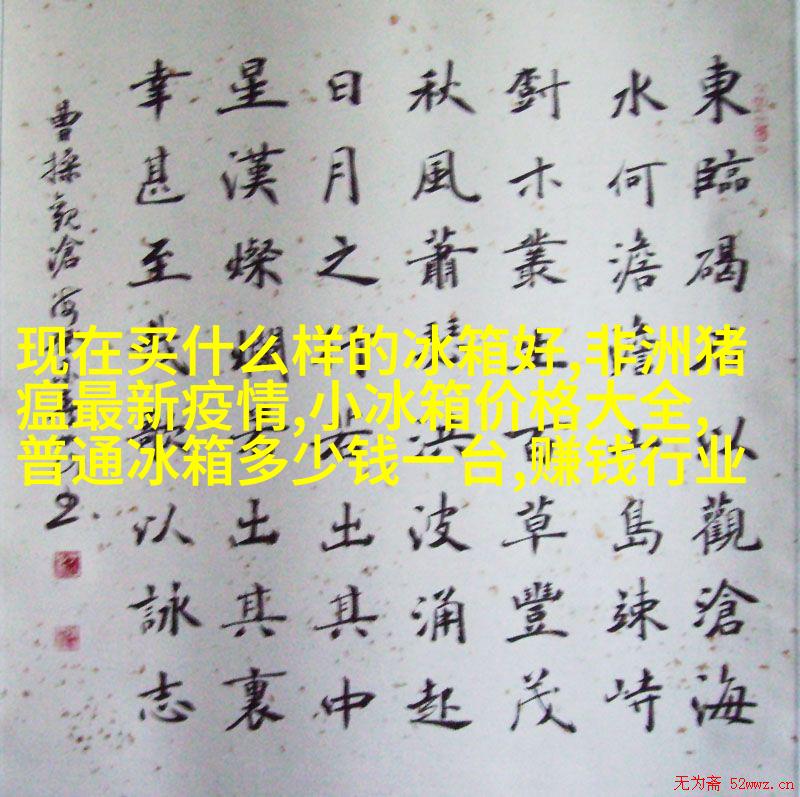 现在买什么样的冰箱好,非洲猪
瘟最新疫情,小冰箱价格大全,
普通冰箱多少钱一台,赚钱行业
東臨碣石以觀滄海
水何澹澹山島竦峙
尌木叢生百草豐茂
秋風蕭瑟洪波涌起
日月之行若出其中
星漢燦爛若出其裏
幸甚至哉歌以詠志
曹操觀滄海
无为斋 52wwz.cn